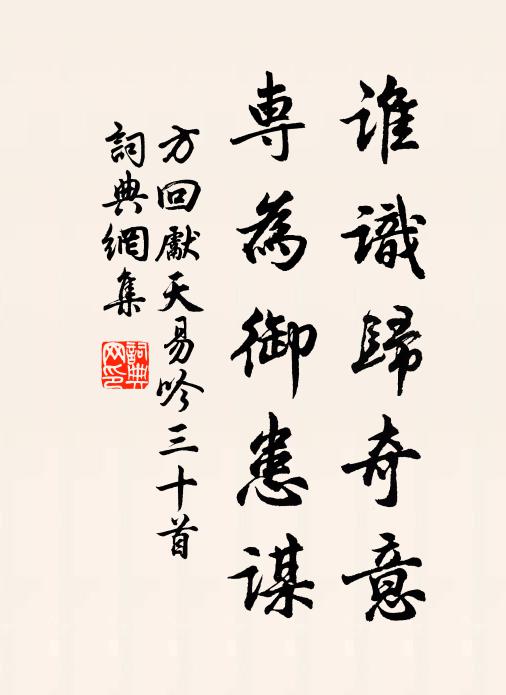 誰識歸奇意
專為御患謀
方回獻天易吟三十首
詞典網集
詞典網印